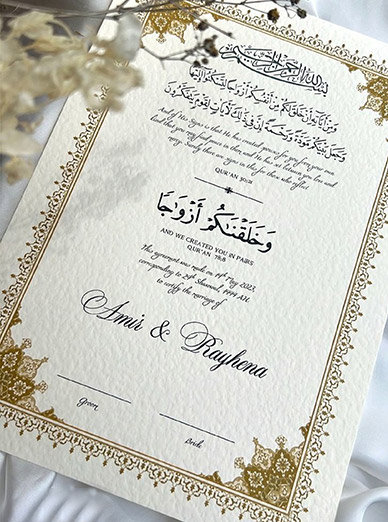 بسم الله الرحمن الرحيم
وَمِنْ آيَاتِهِ أَنْ خَلَقَ لَكُم مِّنْ أَنفُسِكُمْ أَزْوَاجًا لِّتَسْكُنُوا إِلَيْهَا
وَجَعَلَ بَيْنَكُم مَّوَدَّةً وَرَحْمَةً إِنَّ فِي ذَٰلِكَ لَآيَاتٍ لِّقَوْمٍ يَتَفَكَّرُونَ
And of His Signs is that He has created spouses for you from your own
kind that you may find peace in them and He has set between you love and
mercy. Surely there are signs in this for those who reflect
QUR'AN 30:21
وَخَلَقْنَاكُمْ أَزْوَاجًا
AND WE CREATED YOU IN PAIRS
QUR'AN 78:8
This agreement was made on 19th May 2023,
corresponding to 29th Shawwal, 1444 AH.
to certify the marriage of
Amir & Rayhena
Groom
Bride